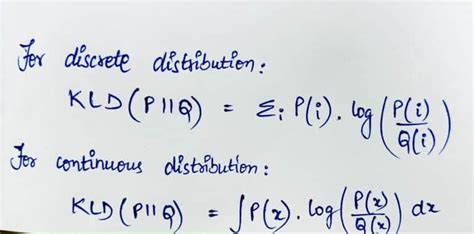 For discrete distribution:
KLD(P||Q) = Σi P(i). log(P(i)/Q(i))
For continuous distribution:
KLD(P||Q) = ∫P(x). log(P(x)/Q(x)) dx